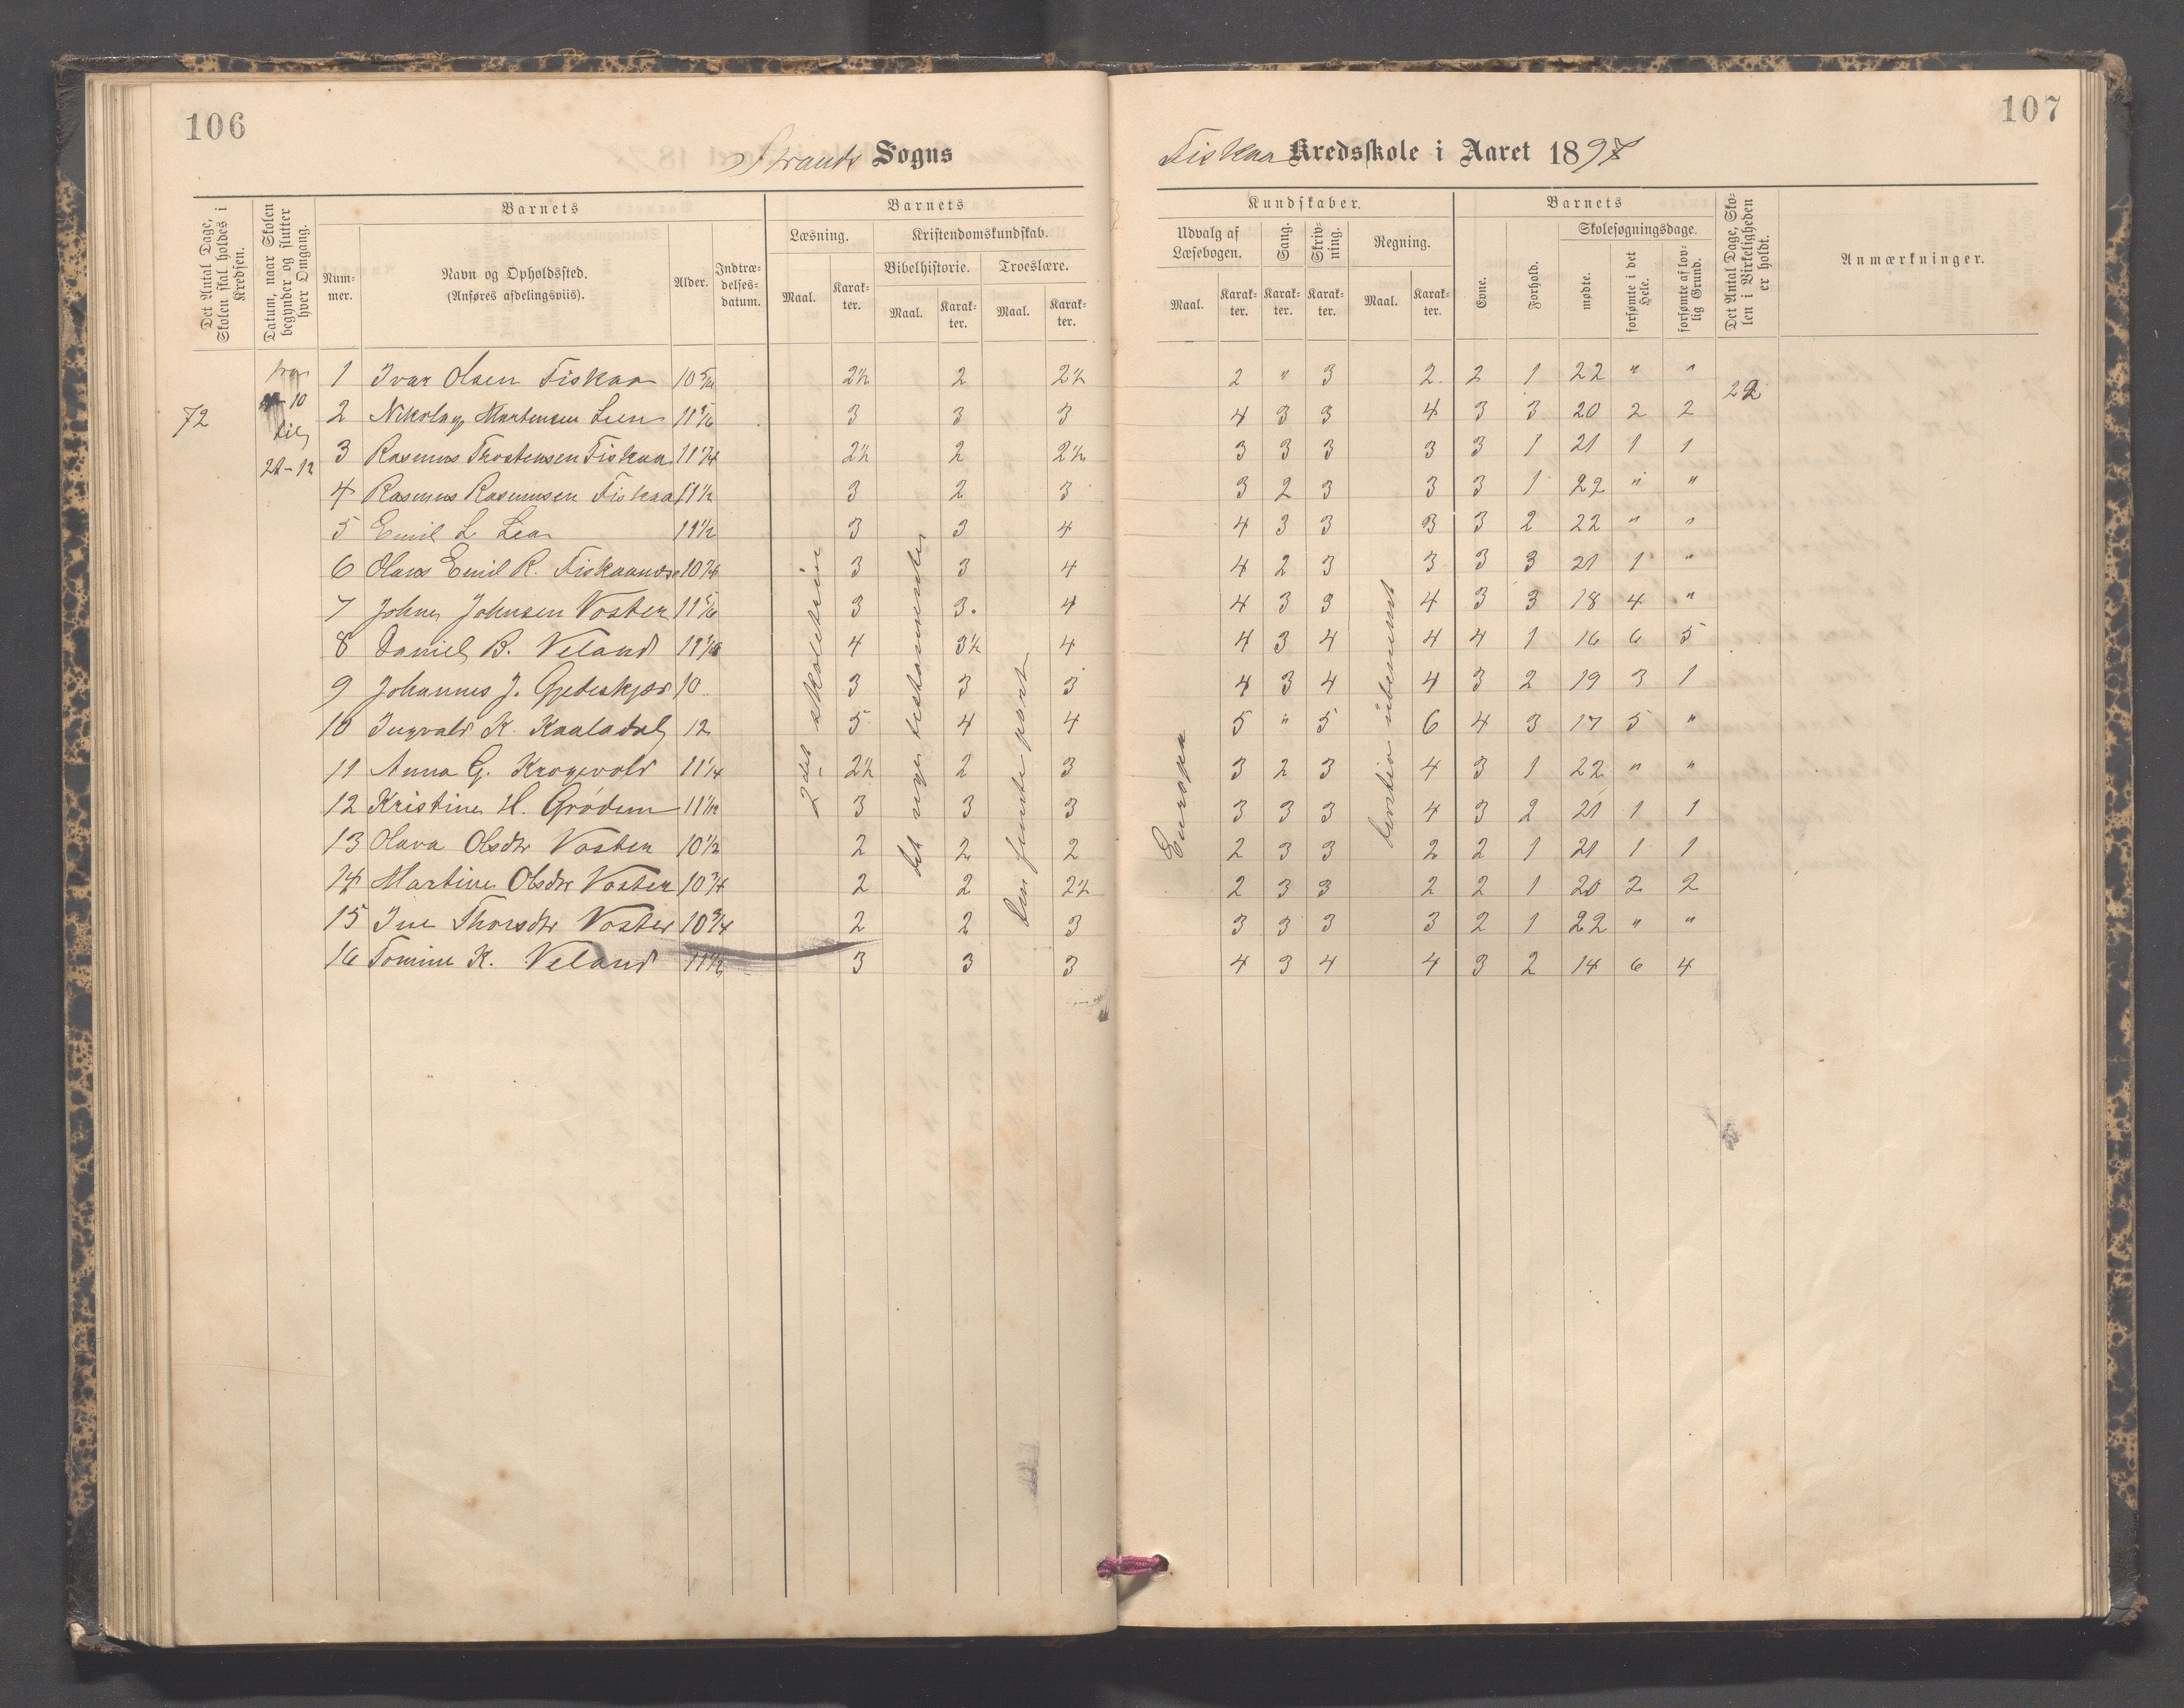 106
107
Strands Sogns
Fiskaa Kredsskole i Aaret 1897
Det Antal Dage, Skolen skal holdes i Kredsen.
Datum, naar Skolen begynder og slutter hver Omgang.
Barnets
Nummer.
Navn og Opholdssted. (Anføres afdelingsviis).
Alder.
Indtrædelsesdatum.
Barnets
Læsning.
Maal.
Karakter.
Kristendomskundskab.
Bibelhistorie.
Maal.
Karakter.
Troeslære.
Maal.
Karakter.
Kundskaber.
Udvalg af Læsebogen.
Maal.
Karakter.
Sang.
Karakter.
Skrivning.
Karakter.
Regning.
Maal.
Karakter.
Barnets
Evne.
Forhold.
Skolesøgningsdage.
mødte.
forsømte i det Hele.
forsømte af lovlig Grund.
Det Antal Dage, Skolen i Virkeligheden er holdt.
Anmærkninger.
72
fra
10
til
22-12
2det skoletrin
det nye testamente
den femte part
Europa
22
1 Ivar Olsen Fiskaa 2½ 2 2½ 2 " 3 2 2 1 22 " "
2 Nikolay Martensen Lien 3 3 3 4 3 3 4 3 3 20 2 2
3 Rasmus Thostensen Fiskaa 11¼ 2½ 2 2½ 3 3 3 3 3 1 21 1 1
4 Rasmus Rasmussen Fiskaa 11½ 3 2 3 3 2 3 3 3 1 22 " "
5 Emil L Lea 11½ 3 3 4 4 3 3 3 3 2 22 " "
6 Hans Emil R. 10¾ 3 3 4 4 2 3 3 3 3 21 1 "
7 Johnsen Voster 3 3. 4 4 3 3 4 3 3 18 4 "
8 Daniel B. Veland 4 3½ 4 4 3 4 4 4 1 16 6 5
9 Johannes J. 10 3 3 3 4 3 4 4 3 2 19 3 1
10 Ingvald K. Kaaladal 12 5 4 4 5 " 5 6 4 3 17 5 "
11 Anna G. Krogevold 11¼ 2½ 2 3 3 2 3 4 3 1 22 " "
12 Kristine H. Grødem 3 3 3 3 3 3 4 3 2 21 1 1
13 Olava Olsdtr Voster 10½ 2 2 2 2 3 3 2 2 1 21 1 1
14 Martine Olsdtr Voster 10¾ 2 2 2½ 2 3 3 2 2 1 20 2 2
15 Ine Thorsdtr Voster 10¾ 2 2 3 3 3 3 3 2 1 22 " "
16 Tomine K. Veland 11½ 3 3 3 4 3 4 4 3 2 14 6 4